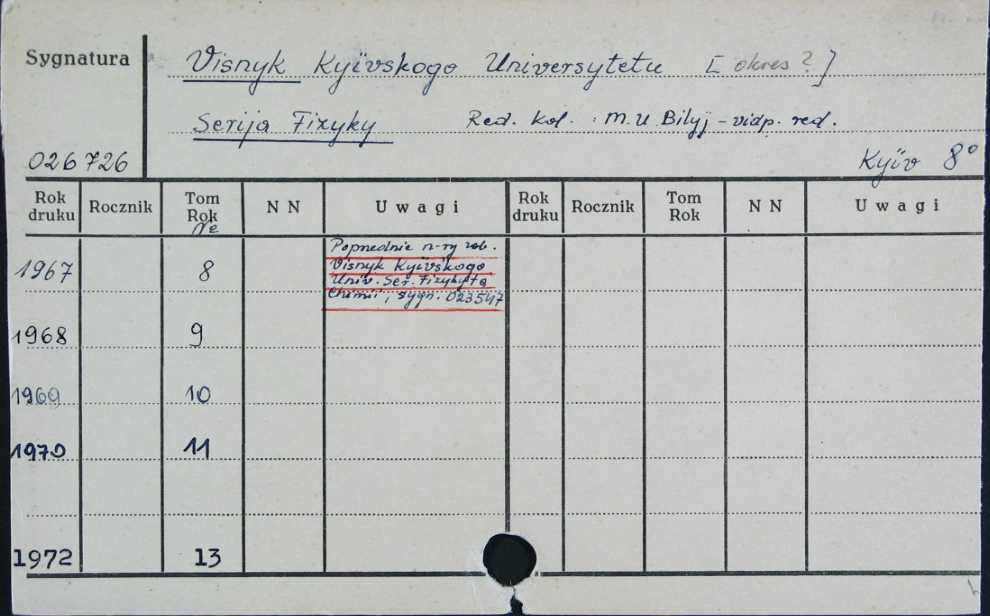 Sygnatura
Visnyk Kyïvskogo Universytetu [okres?]
Serija Fizyky Red. kol. : M.U. Bilyj - vidp. red.
026726 Kyïv 8°
Rok druku Rocznik Tom Rok № N N Uwagi Rok druku Rocznik Tom Rok N N Uwagi
Poprzednie n-ry zob.
1967 8 Visnyk Kyïvskogo
Univ. Ser. Fizyky ta
Chimii, sygn. 023547
1968 9
1969 10
1970 11
1972 13